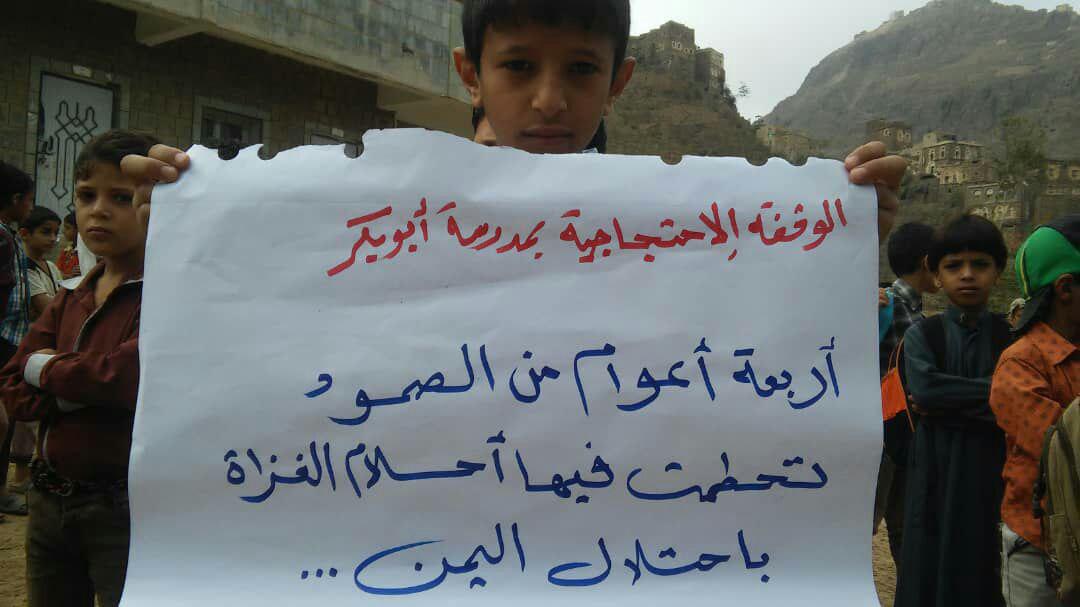 الوقفة الاحتجاجية بمدرسة أبوبكر
أربعة أعوام من الصمود
تحطمت فيها أحلام الغزاة
باحتلال اليمن ...